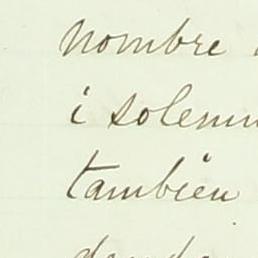 nombre
i solemn
tambien